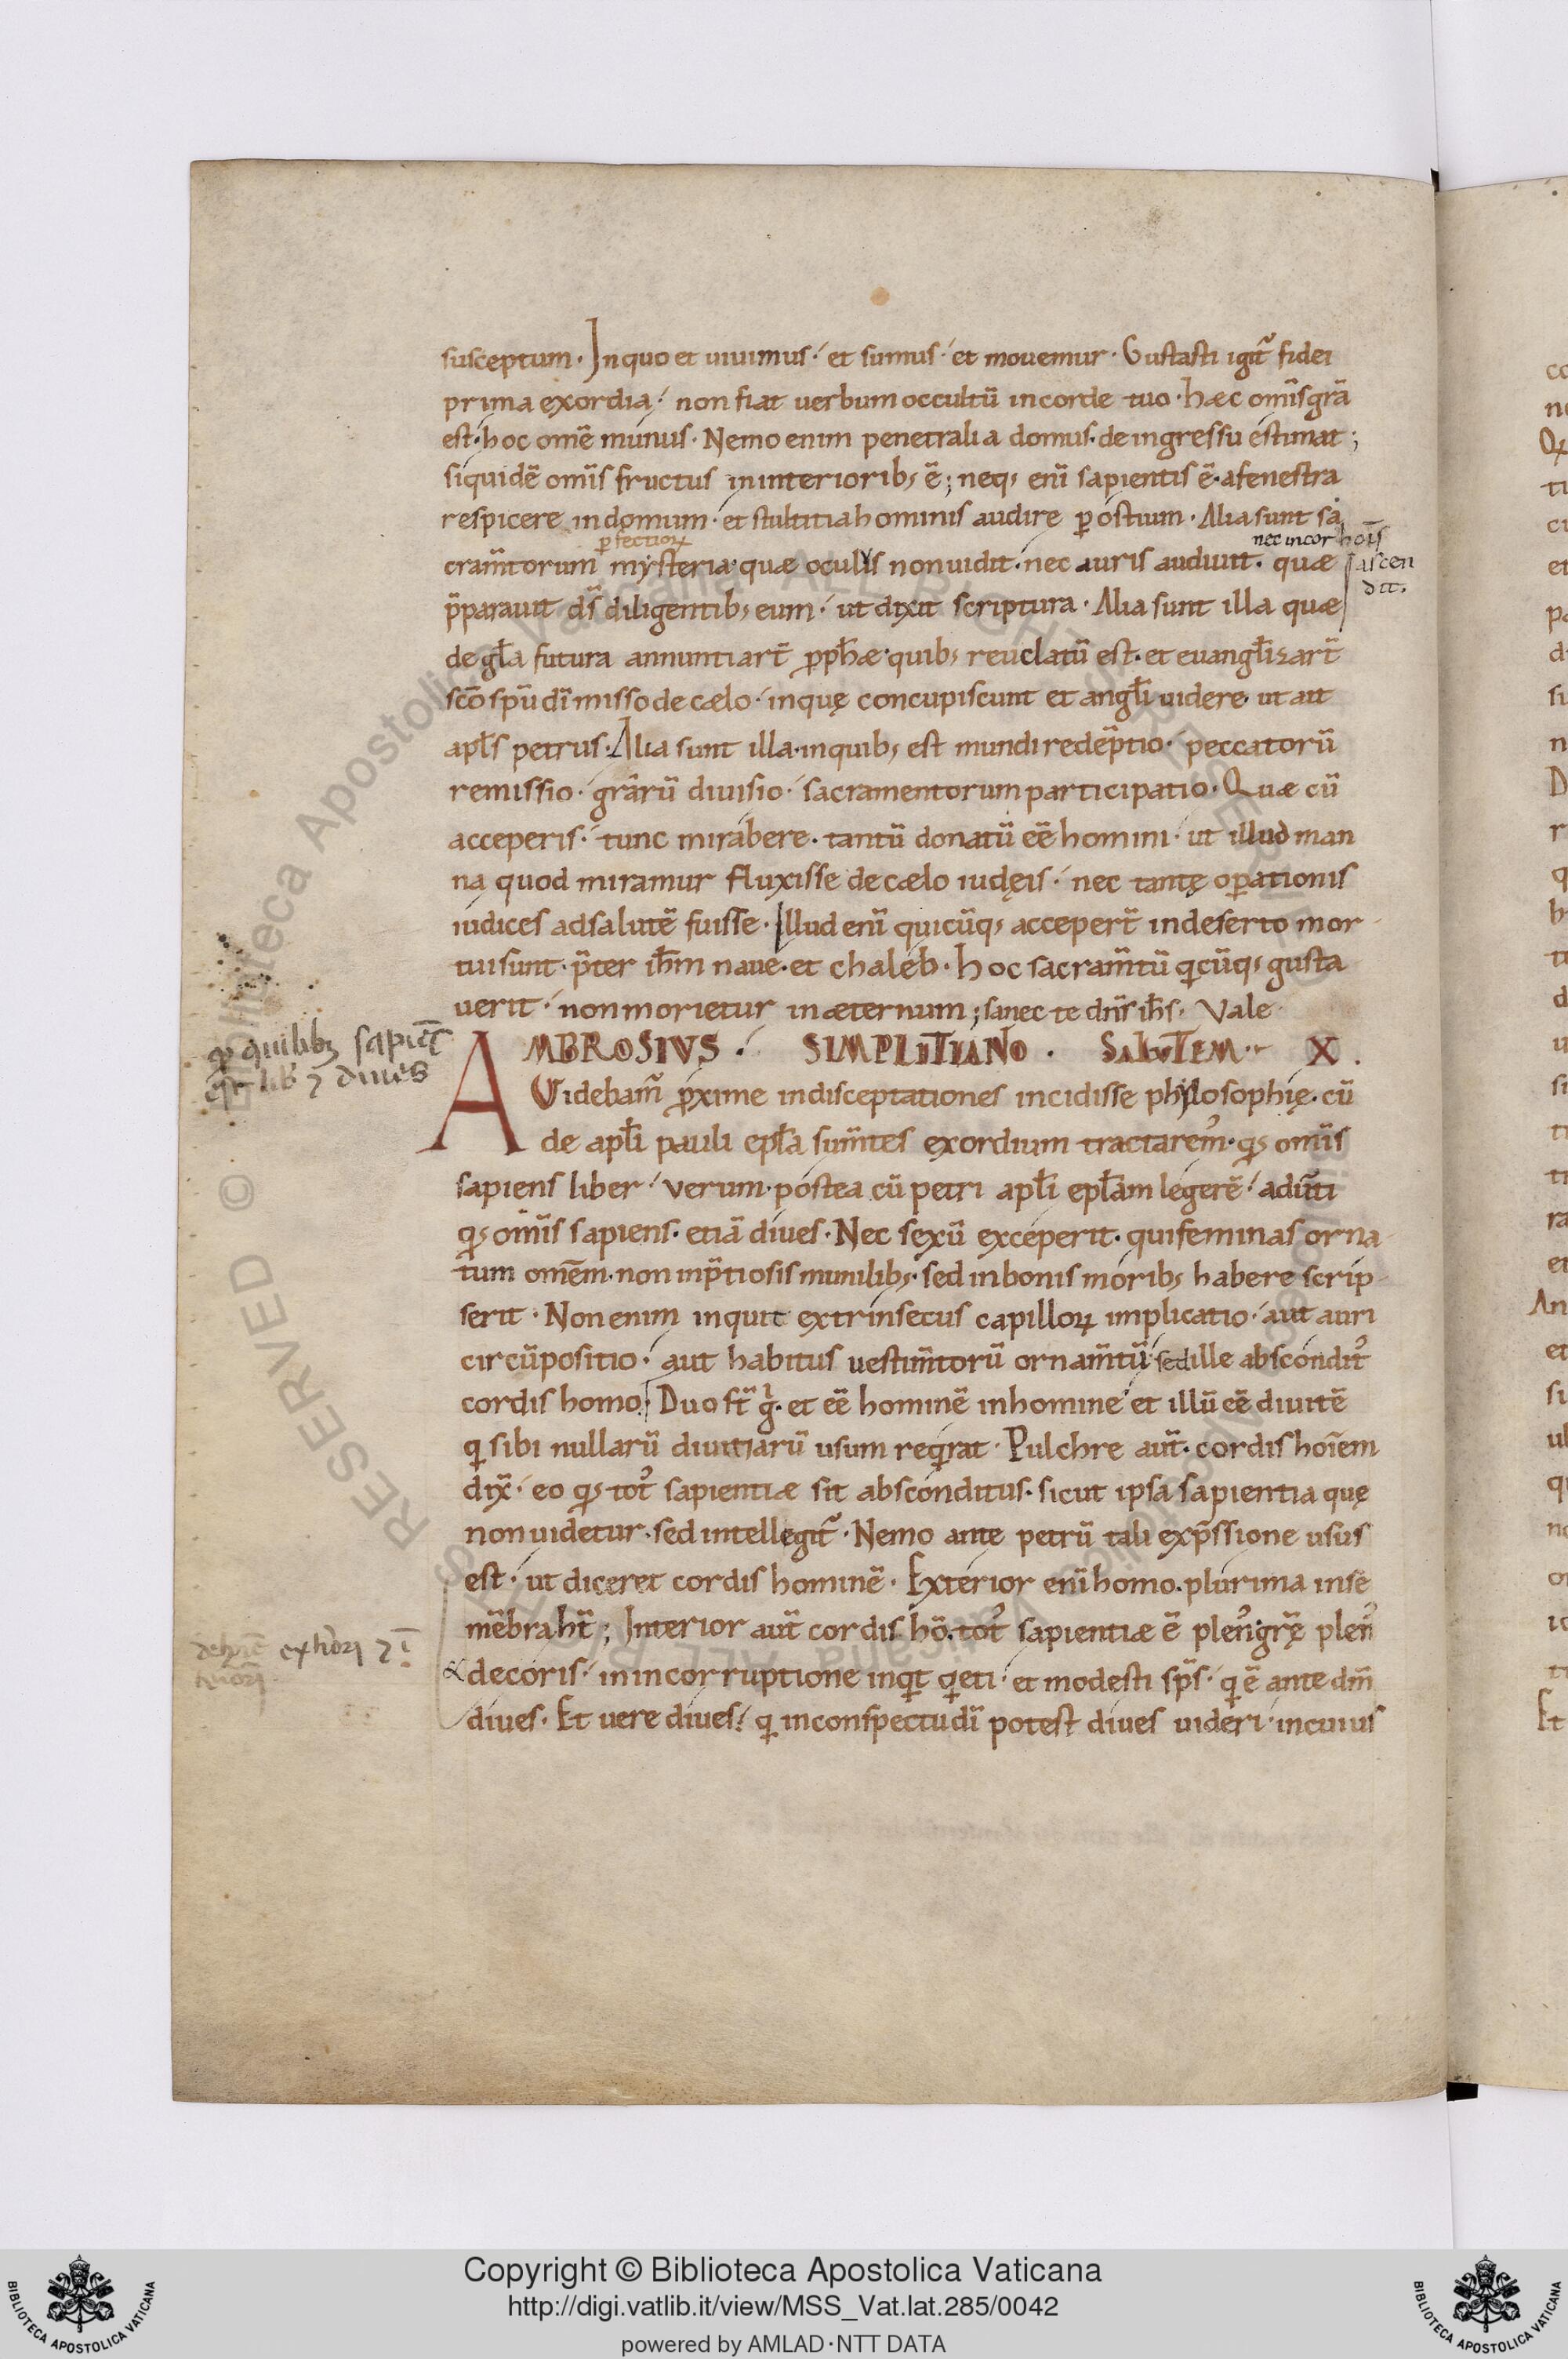 susceptum· In quo et uiuimus· et sumus· et mouemur· Gustasti igit᷑ fidei
prima exordia· non fiat uerbum occultū in corde tuo· hæc omīs grā
est· hoc omē munus· Nemo enim penetralia domus· de ingressu estimat;
siquidē omīs fructus in interiorib; ē; neq; enī sapientis ē· a fenestra
respicere in domum· et stultitia hominis audire ꝑ ostium· Alia sunt sa
perfectioꝝ
nec in cor hoīs
cram̄torum mysteria· quæ oculis non uidit· nec auris audiuit· quæ
ascen
dit.
p̄parauit ds̄ diligentib; eum· ut dixit scriptura· Alia sunt illa quæ
de gl̄a futura annuntiart̄ ꝓph̄æ· quib; reuelatū est· et euangl̄izart̄
sc̄o sp̄u dī misso de cælo· in quę concupiscunt et angl̄i uidere· ut ait
apl̄s petrus· Alia sunt illa· in quib; est mundi redēptio· peccatorū
remissio· grārū diuisio· sacramentorum participatio· Quæ cū
acceperis· tunc mirabere· tantū donatū eē homini· ut illud man
na quod miramur fluxisse de cælo iudęis· nec tantę oꝑationis
iudices ad salutē fuisse· Illud enī quicūq; accepert̄ in deserto mor
tui sunt· p̄ter ih̄m naue· et chaleb· hoc sacram̄tū qicūq; gusta
uerit· non morietur in æternum; sanec te dn̄s ih̄s· Vale·
quilibꝫ sapiēs
est lib̄ ⁊ diues
AMBROSIVS· SIMPLITIANO· SALVTEM· X.
Videbam᷑ ꝓxime in disceptationes incidisse phylosophię· cū
de apl̄i pauli epl̄a sum̄tes exordium tractarem᷒· qđ omīs
sapiens liber· verum· postea cū petri apl̄i epl̄am legerē· adūti
qđ omīs sapiens· etiā diues· Nec sexū exceperit· qui feminas orna
tum omēm· non in p̄tiosis munilib;· sed in bonis morib; habere scrip
serit· Non enim inquit extrinsecus capilloꝝ implicatio· aut auri
circūpositio· aut habitus uestim̄torū ornam̄tū· sed ille abscondit᷒
cordis homo· Duo st̄ gͥ· et eē hominē in homine· et illū eē diuitē
qi sibi nullarū diuitiarū usum reqirat· Pulchre aut̄· cordis hoīem
dix̄· eo qđ tot᷒ sapientiæ sit absconditus· sicut ipsa sapientia quę
non uidetur· sed intellegit᷑· Nemo ante petrū tali exp̄ssione usus
est· ut diceret cordis hominē· Exterior enī homo· plurima in se
mēbra ht̄; Interior aut̄ cordis hō· tot᷒ sapientiæ ē plen᷒ gr̄ę plen᷒
decoris· in incorruptione inqit qieti· et modesti sp̄s· qi ē ante dm̄
diues· Et uere diues· qi in conspectu dī potest diues uideri· in cuius
Copyright © Biblioteca Apostolica Vaticana
http://digi.vatlib.it/view/MSS_Vat.lat.285/0042
powered by AMLAD·NTT DATA